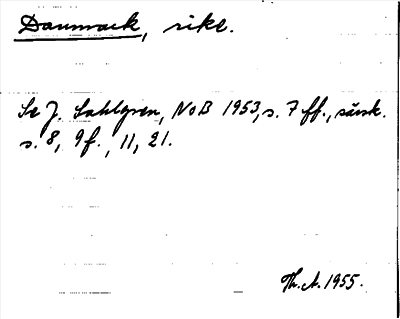 Danmark, rike.
Se J. Sahlgren, NoB 1953, s. 7 ff., särsk.
s. 8, 9 f., 11, 21.
Th. A. 1955.